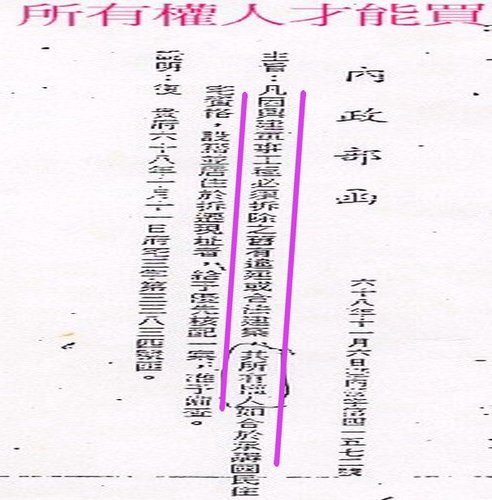 所有權人才能買
內政部函
六十八年十一月六日台內營字第四一五七二號
主旨：凡因興建工程必須拆除之舊有違建或合法建築，其所有權人如合於承購國民住
宅資格，設籍並居住於拆遷現址者，給予優先核配一案，准予備查。
說明：復 貴府六十八年十月十一日府宅三字第三三八三四號函。